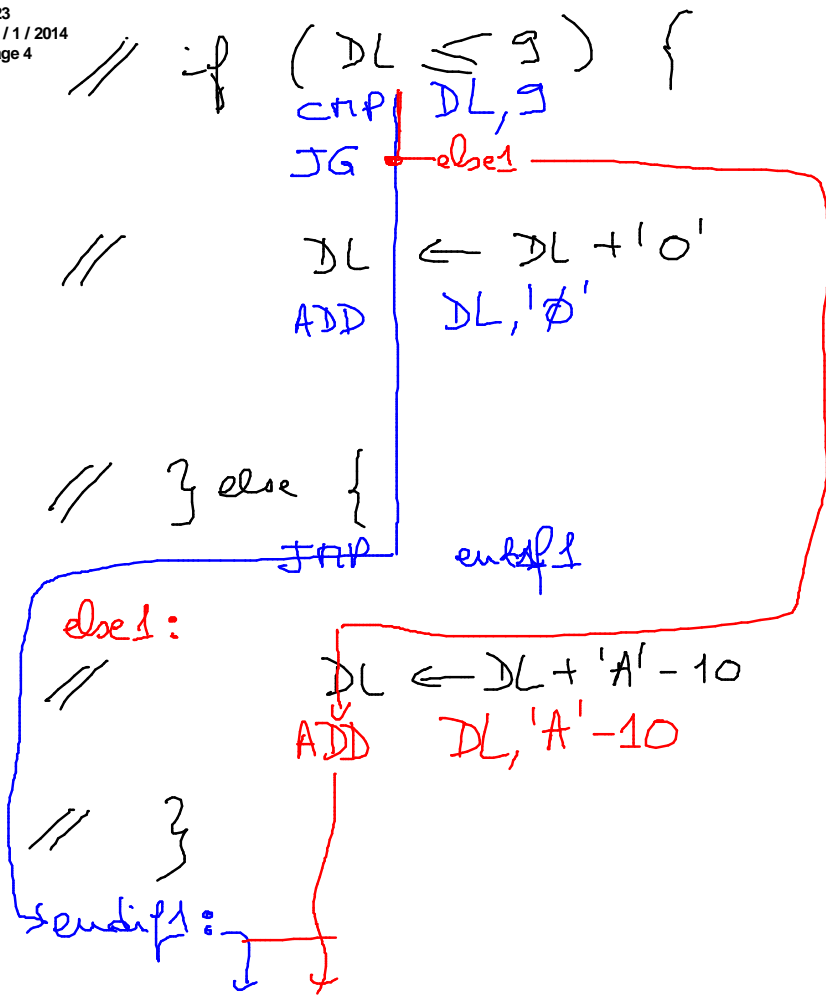 23
/ 1 / 2014
ge 4
// if (DL ≤ 9) {
CMP DL, 9
JG else1
// DL ← DL + '0'
ADD DL, '0'
// } else {
JMP
else1:
// DL ← DL + 'A' - 10
ADD DL, 'A' - 10
// }
endif1: